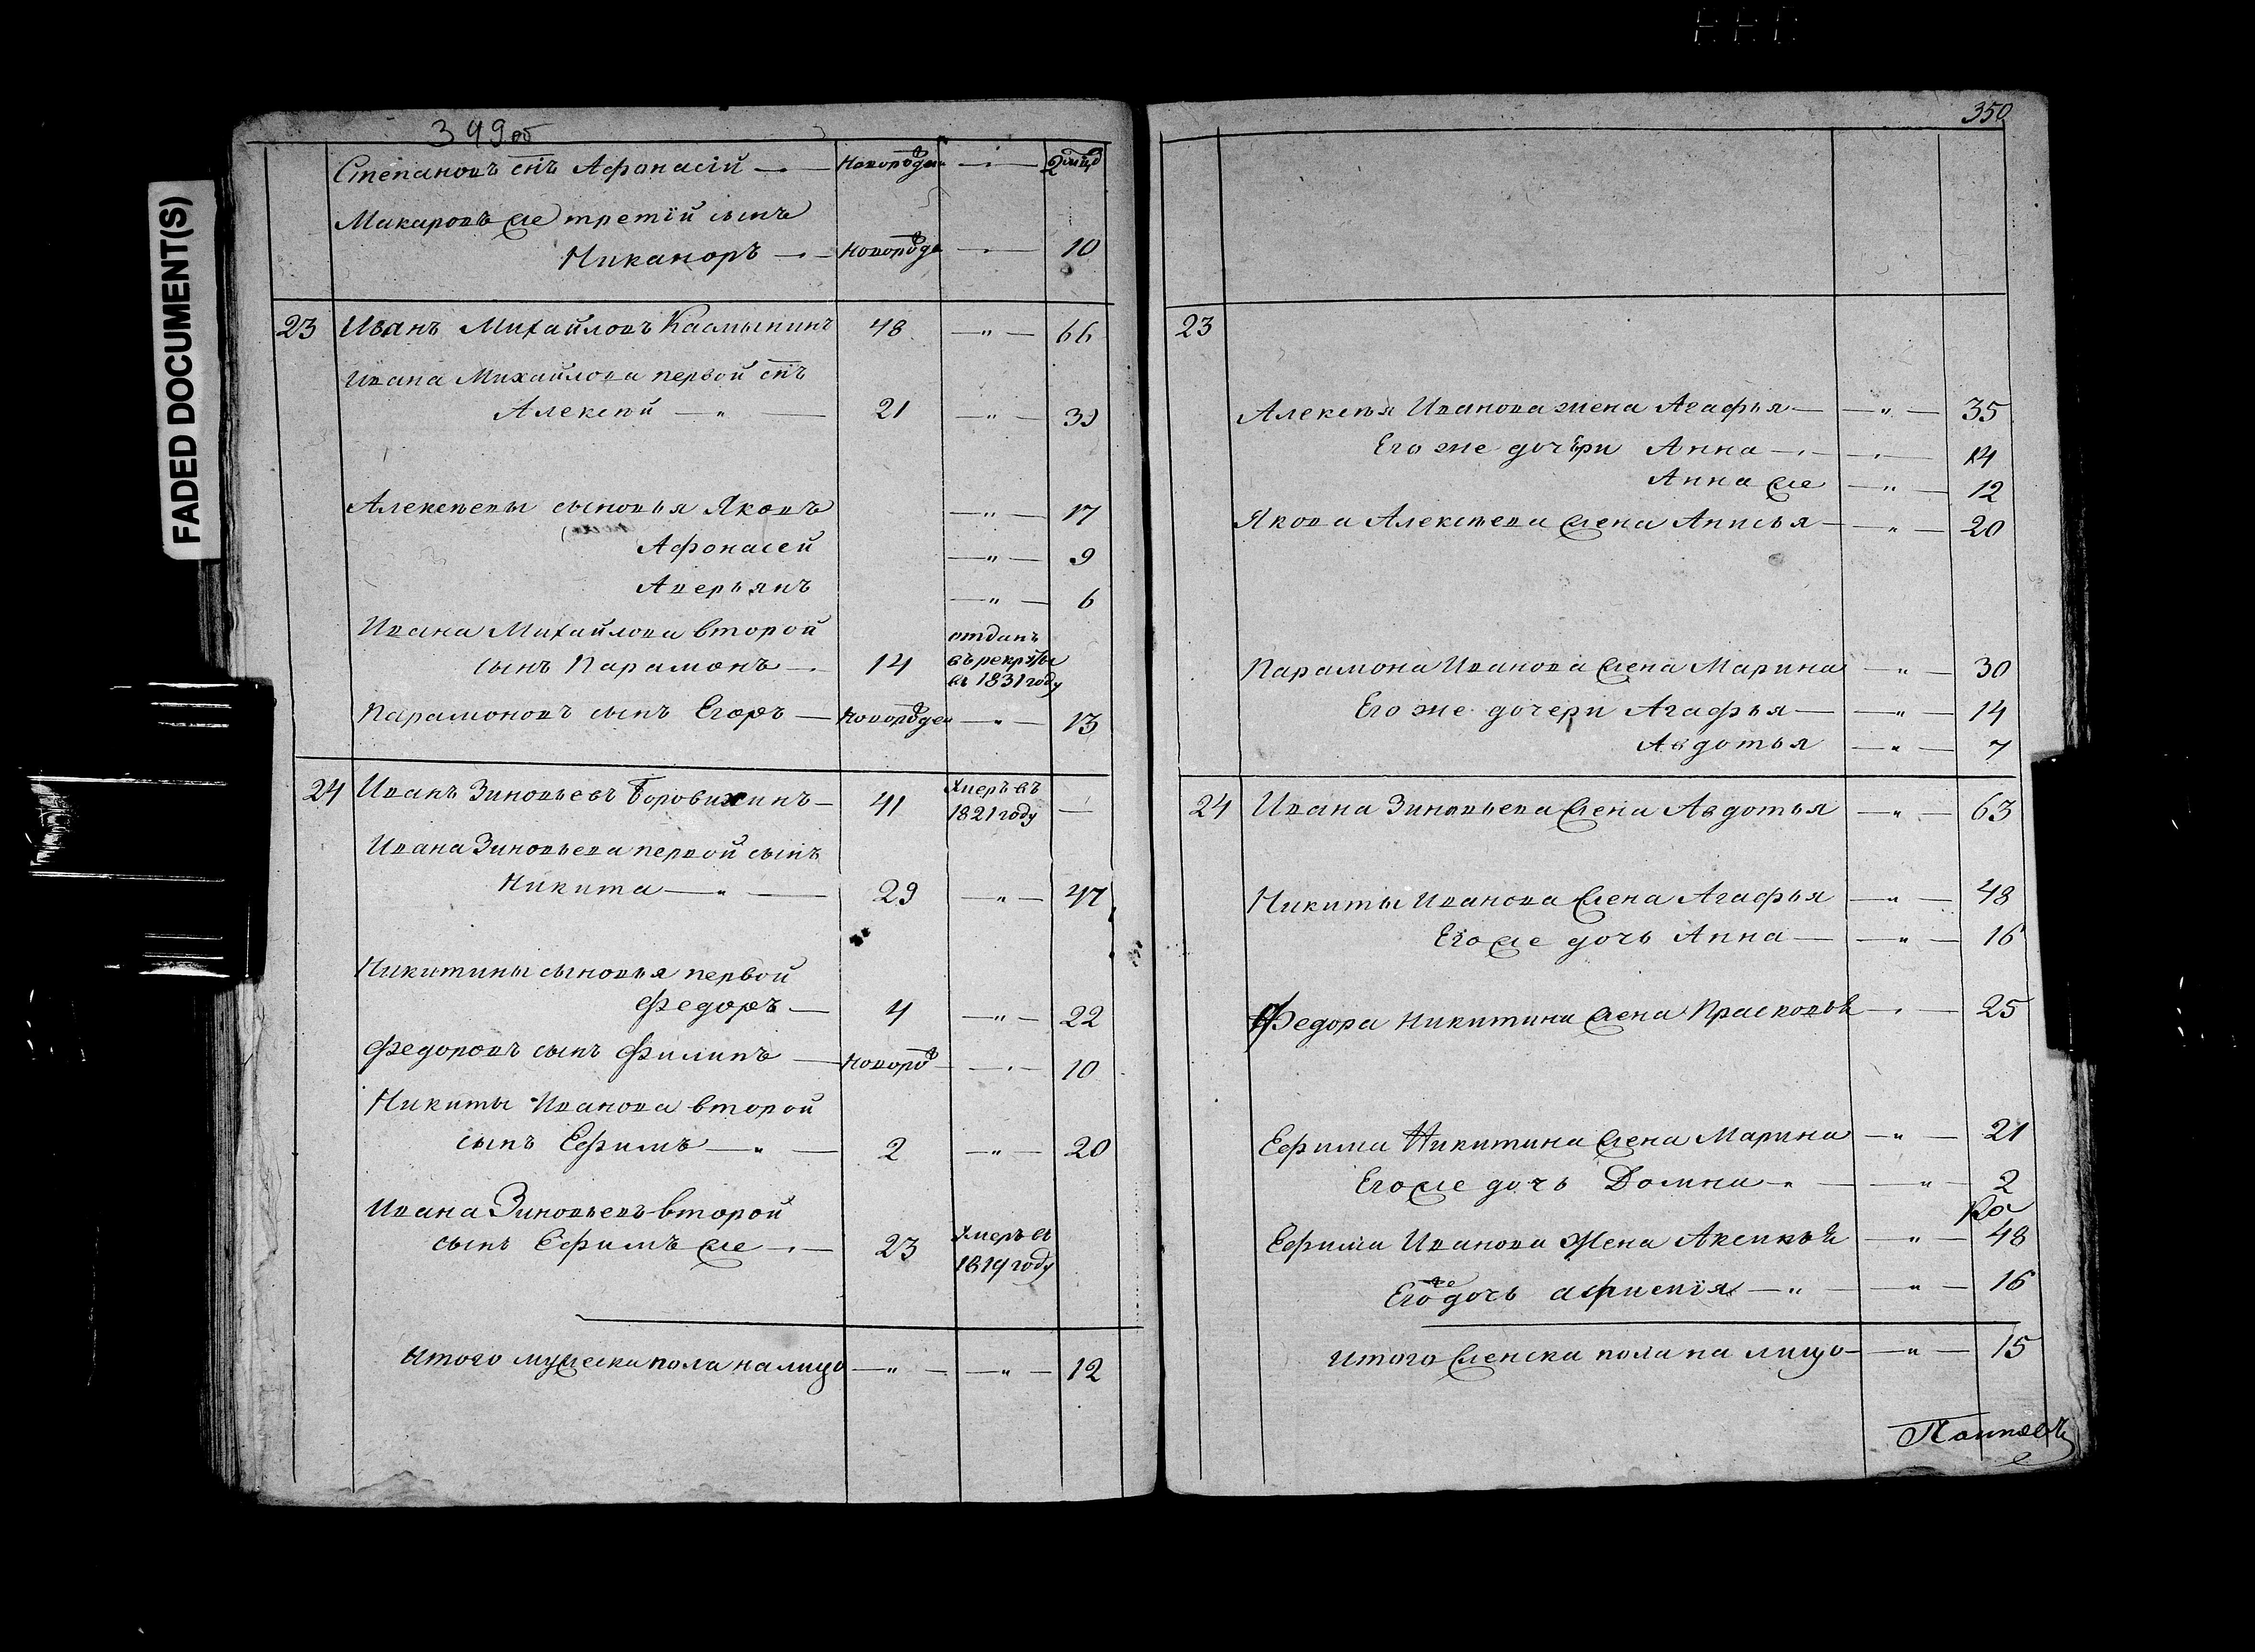 FADED DOCUMENT(S)
349об
Степановъ сн҃ъ Афонасій — Новорожден — 2 мѣц
Макаровъ же третій сынъ
Никаноръ — Новорожде — 10
23 Иванъ Михайловъ 48 — " — 66
Ивана Михайлова первой сн҃ъ
Алексѣй — " — 21 — " — 39
Алексѣевы сыновья Яковъ — " — 17
Афонасей — " — 9
Аверьянъ — " — 6
Ивана Михайлова второй отданъ
сынъ Парамонъ — 14 въ рекруты
въ 1831 году
Парамоновъ сынъ Егоръ — Новорожден — " — 13
24 Иванъ Зиновьевъ Боровихинъ — 41 Умеръ въ —
1821 году
Ивана Зиновьева первой сынъ
Никита — " — 29 — " — 47
Никитины сыновья первой
Федоръ — 4 — " — 22
Федоровъ сынъ Филипъ — Новорож — 10
Никиты Иванова второй
сынъ Ефимъ — " — 2 — " — 20
Ивана Зиновьевъ второй
сынъ Ефимъ же — 23 Умеръ въ
1819 году
Итого мужеска пола на лицо — " — — " — 12
350
23
Алексѣя Иванова жена Агафья — — " — 35
Его же дочери Анна — — 14
Анна же — " — 12
Якова Алексѣева жена Анисья — — " — 20
Парамона Иванова жена Марина — " — 30
Его же дочери Агафья — — " — 14
Авдотья — " — 7
24 Ивана Зиновьева жена Авдотья — " — 63
Никиты Иванова жена Агафья — " — 48
Его же дочь Анна — — " — 16
Федора Никитина жена Прасковья — 25
Ефима Никитина жена Марина — " — 21
Его же дочь Домна — " — 2
Ефима Иванова Жена Аксинья — " — 48
Его же дочь — " — — " — 16
Итого женска пола на лицо — — " — 15